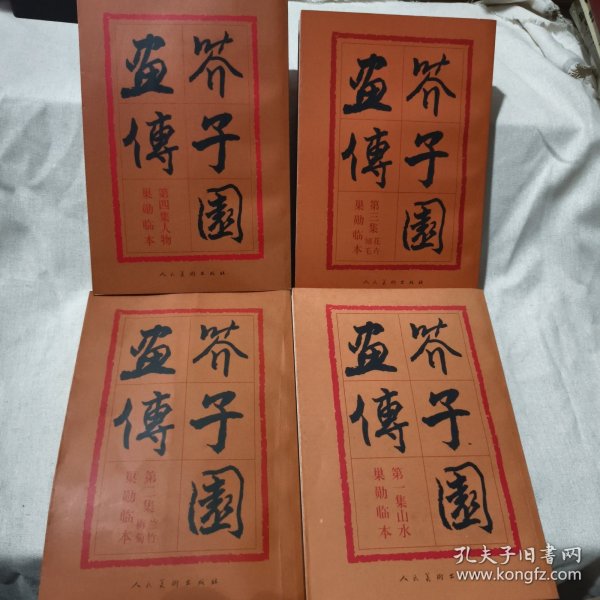 芥子園
畫傳
第四集人物
巢勋临本
人民美術出版社
芥子園
畫傳
第三集花卉翎毛
巢勋临本
人民美術出版社
芥子園
畫傳
第二集兰竹梅菊
巢勋临本
人民美術出版社
芥子園
畫傳
第一集山水
巢勋临本
人民美術出版社
孔夫子旧书网
kongfz.com